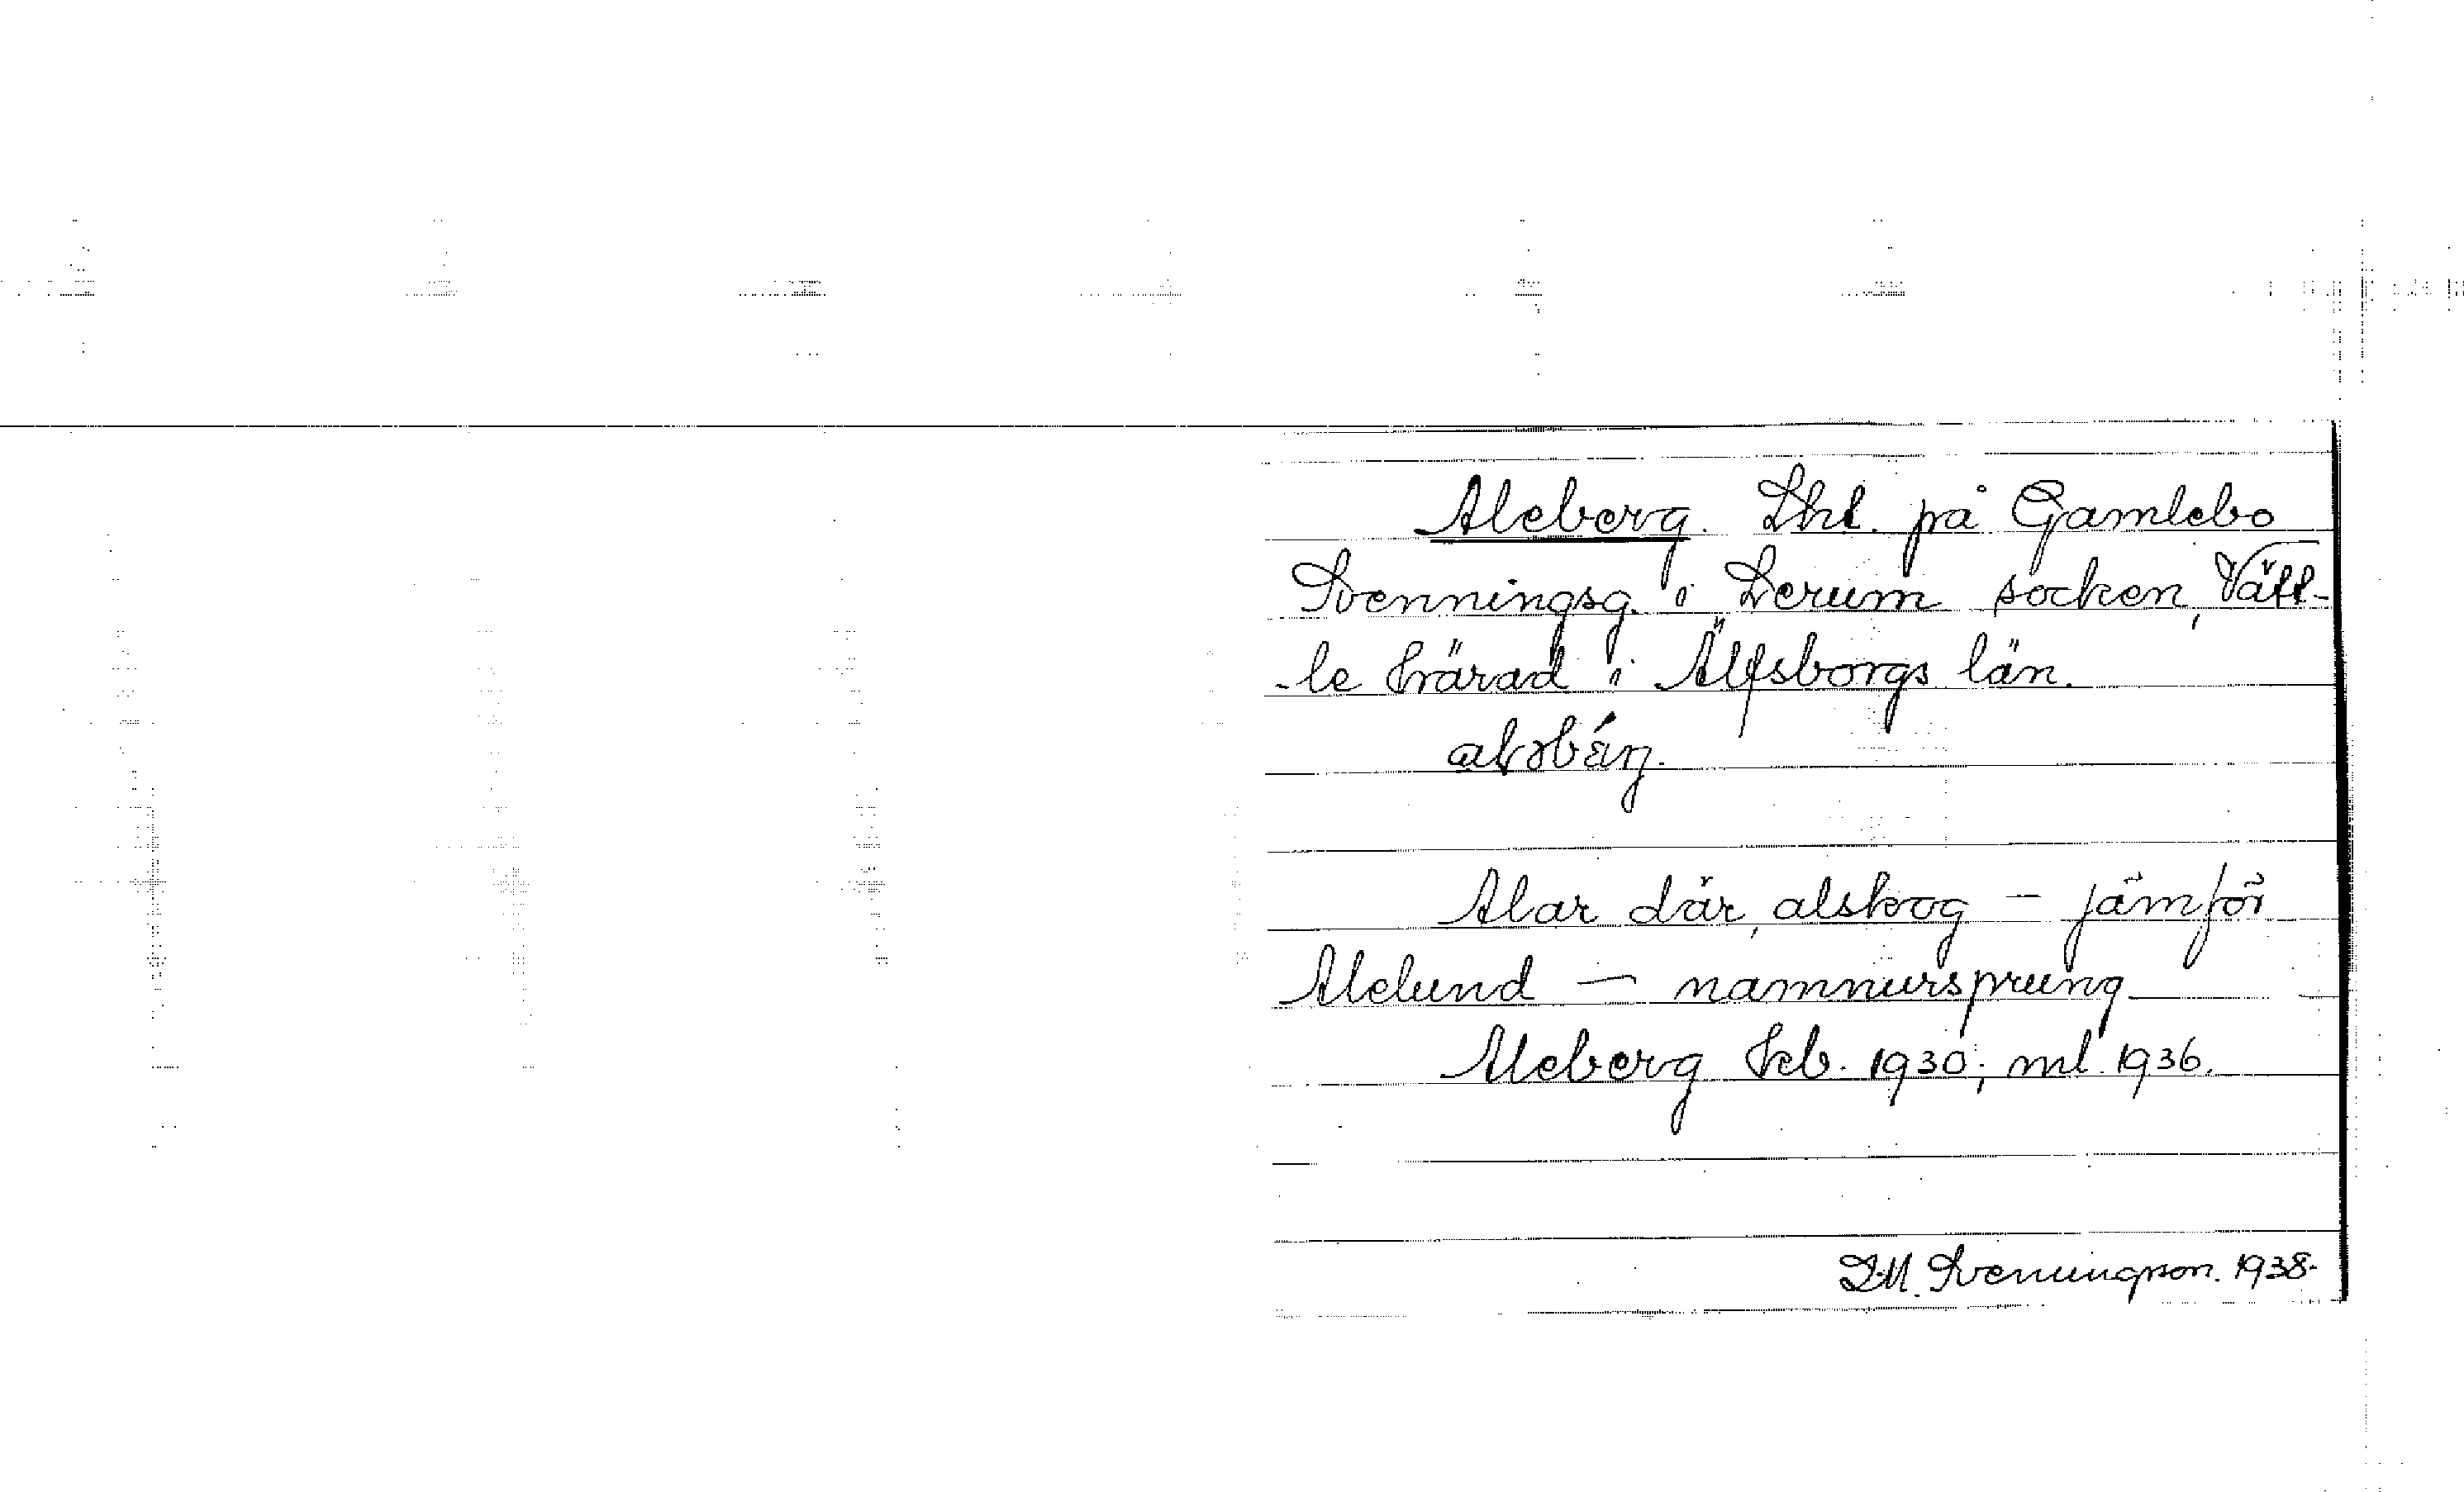 Aleberg. Lht. på Gamlebo
Svenningsg. i Lerum socken, Vätt-
-le härad i Älfsborgs län.
Alar där, alskog – jämför
Alelund – namnursprung
Aleberg kb. 1930; ml. 1936.
D.M. Svenningson. 1938.